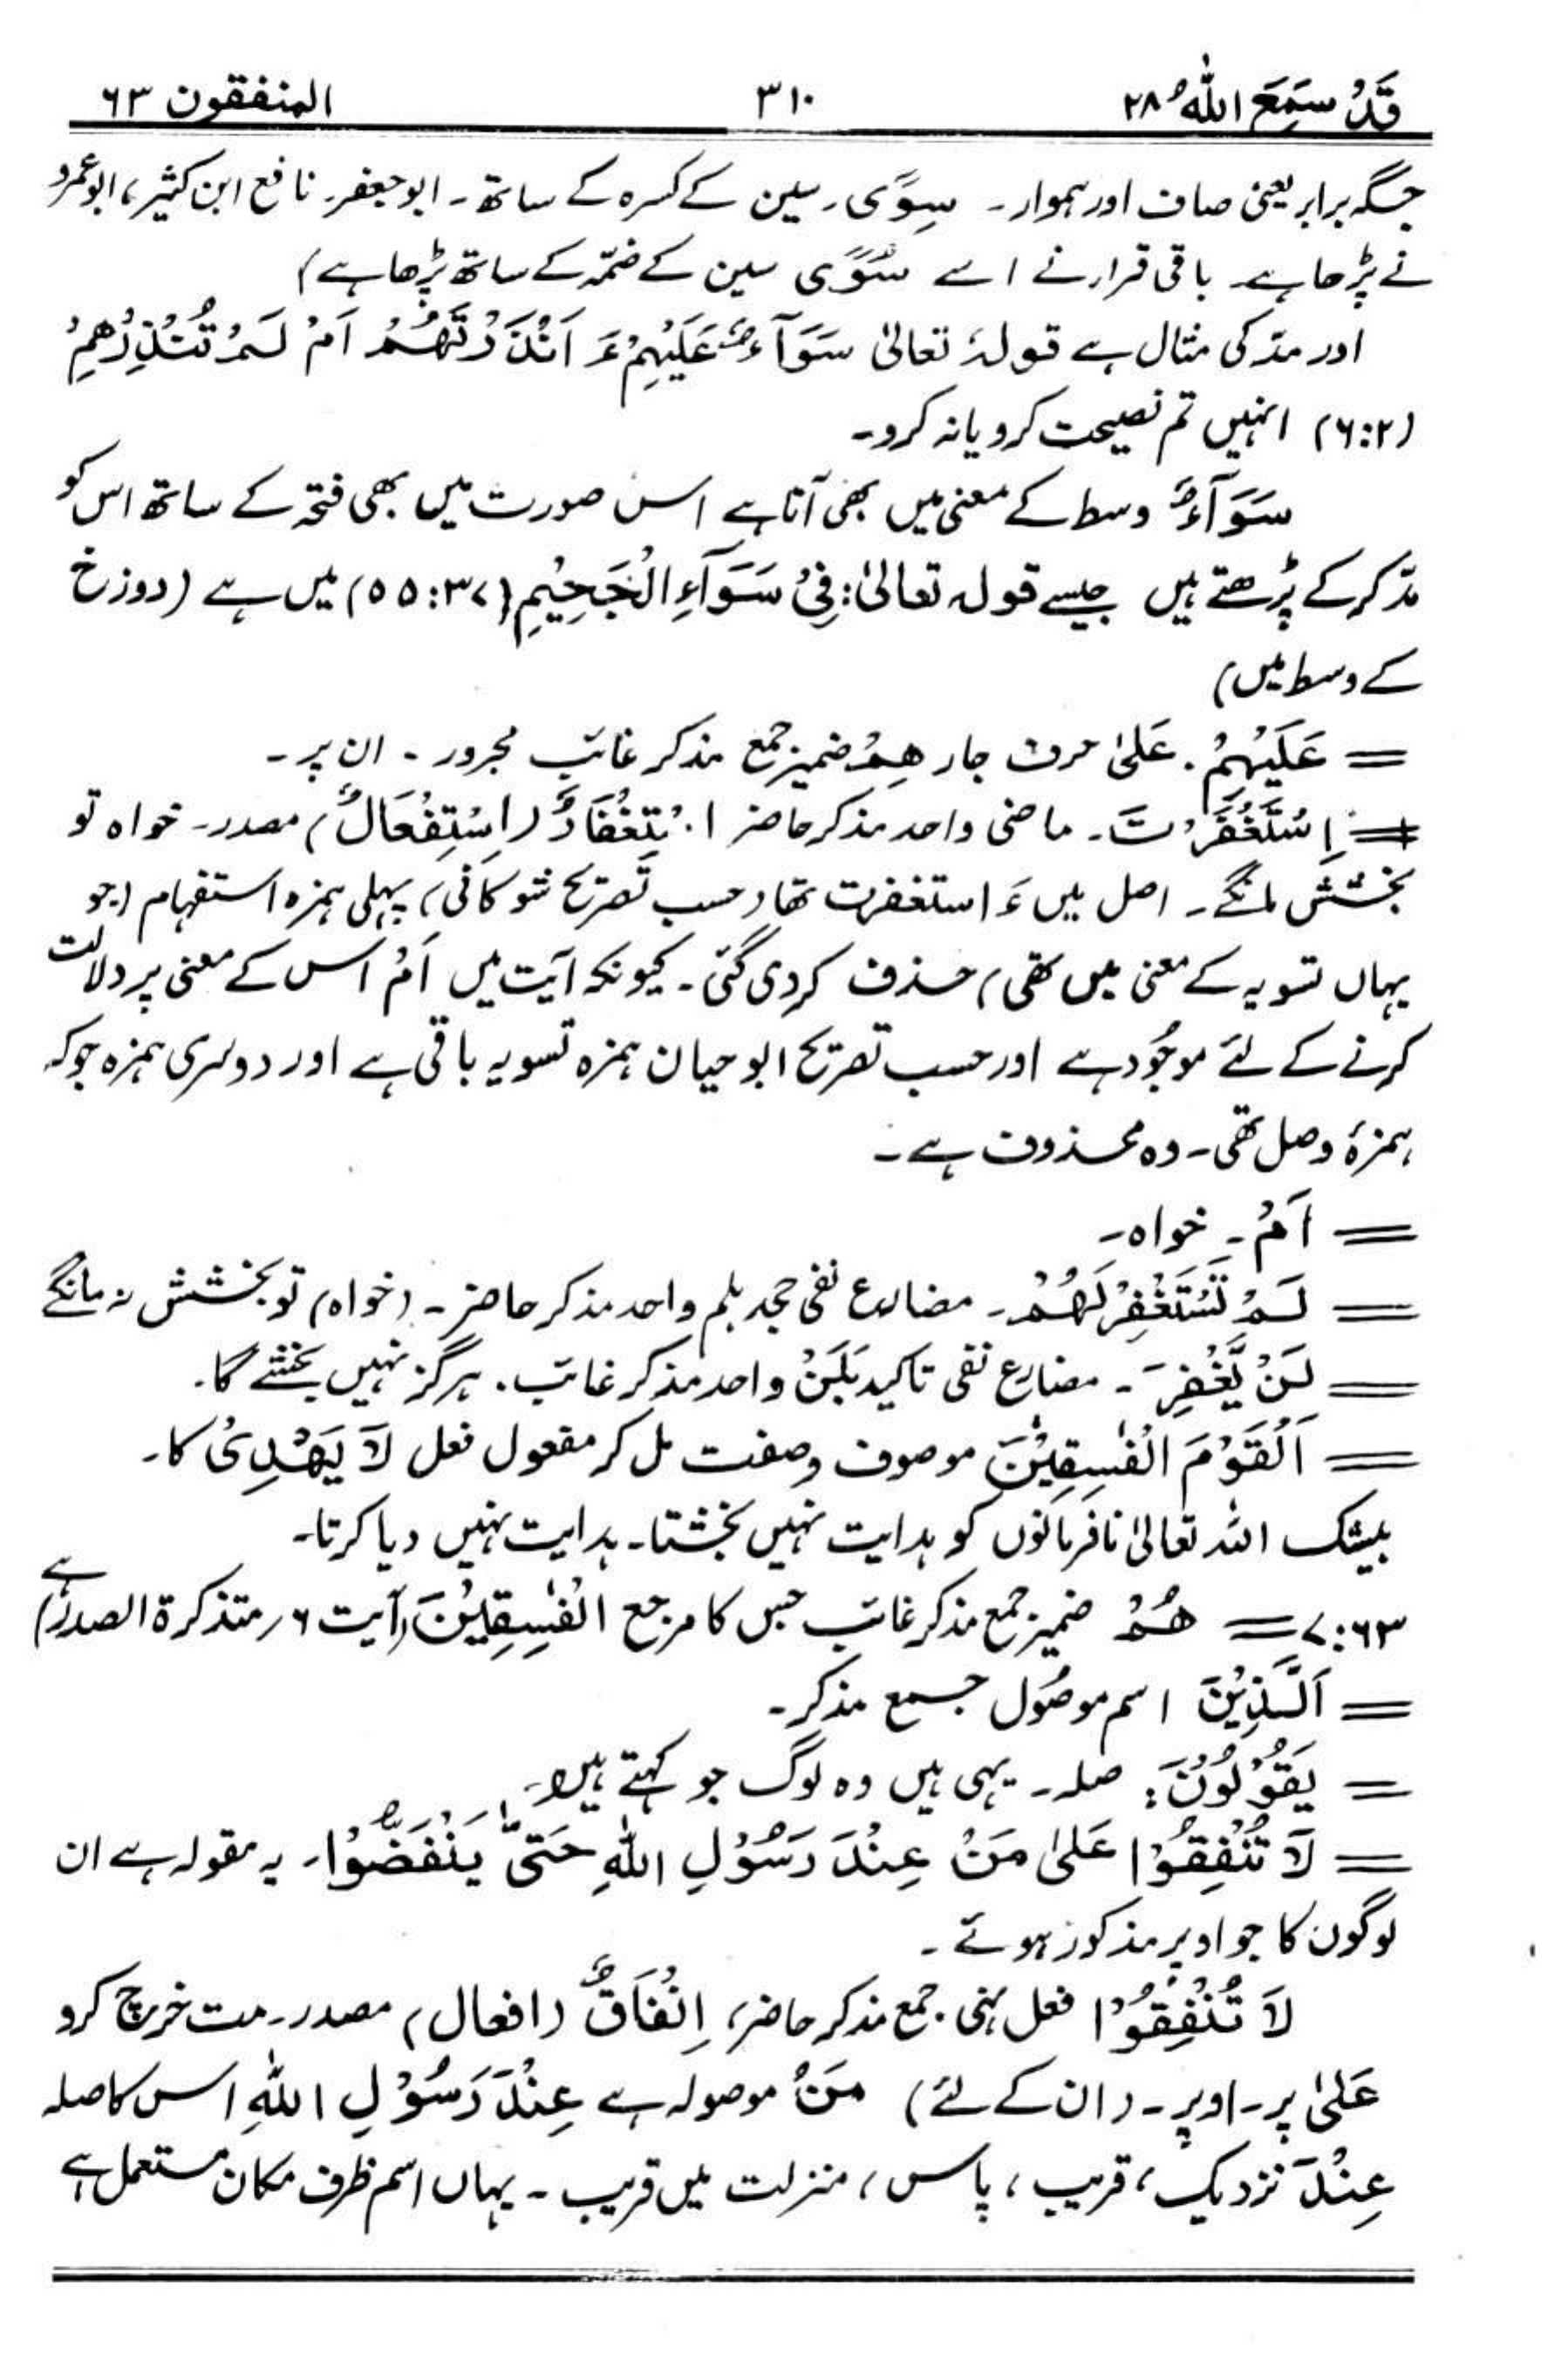 قَدْ سَمِعَ اللّٰهُ ۲۸ ۳۱۰ المنفقون ۶۳
جگہ برابر یعنی صاف اور ہموار۔ سِوًی۔ سین کے کسرہ کے ساتھ۔ ابوجعفر۔ نافع ابن کثیر، ابوعمرو
نے پڑھا ہے۔ باقی قرار نے اسے سُوًی سین کے ضمّہ کے ساتھ پڑھا ہے)
اور مدّ کی مثال ہے قولہٗ تعالیٰ سَوَآءٌ عَلَیْہِمْ ءَ اَنْذَرْتَھُمْ اَمْ لَمْ تُنْذِرْھُمْ
(۶:۲) انہیں تم نصیحت کرو یا نہ کرو۔
سَوَآءٌ وسط کے معنی میں بھی آتا ہے اس صورت میں بھی فتحہ کے ساتھ اس کو
مدّ کرکے پڑھتے ہیں جیسے قولہ تعالیٰ: فِیْ سَوَآءِ الْجَحِیْمِ (۵۵:۳۷) میں ہے (دوزخ
کے وسط میں)
= عَلَیْہِمْ۔ عَلٰی حرف جار ھِمْ ضمیر جمع مذکر غائب مجرور۔ ان پر۔
= اِسْتَغْفَرْتَ۔ ماضی واحد مذکر حاضر اِسْتِغْفَارٌ (اِسْتِفْعَالٌ) مصدر۔ خواہ تو
بخشش مانگے۔ اصل میں ءَ استغفرت تھا (حسب تصریح شوکانی) پہلی ہمزہ استفہام (جو
یہاں تسویہ کے معنی میں تھی) حذف کردی گئی۔ کیونکہ آیت میں اَمْ اس کے معنی پر دلالت
کرنے کے لئے موجود ہے اور حسب تصریح ابوحیان ہمزہ تسویہ باقی ہے اور دوسری ہمزہ جوکہ
ہمزۂ وصل تھی۔ وہ محذوف ہے۔
= اَمْ۔ خواہ۔
= لَمْ تَسْتَغْفِرْ لَھُمْ۔ مضارع نفی حجد بلم واحد مذکر حاضر۔ (خواہ) تو بخشش نہ مانگے
= لَنْ یَّغْفِرَ۔ مضارع نفی تاکید بَلَنْ واحد مذکر غائب۔ ہرگز نہیں بخشے گا۔
= اَلْقَوْمَ الْفٰسِقِیْنَ موصوف وصفت مل کر مفعول فعل لَا یَھْدِیْ کا۔
بیشک اللہ تعالیٰ نافرمانوں کو ہدایت نہیں بخشتا۔ ہدایت نہیں دیا کرتا۔
۷:۶۳ = ھُمْ ضمیر جمع مذکر غائب جس کا مرجع الْفٰسِقِیْنَ (آیت ۶ متذکرۃ الصدر) ہے
= اَلَّذِیْنَ اسم موصول جمع مذکر۔
= یَقُوْلُوْنَ: صلہ۔ یہی ہیں وہ لوگ جو کہتے ہیں۔
= لَا تُنْفِقُوْا عَلٰی مَنْ عِنْدَ رَسُوْلِ اللّٰہِ حَتّٰی یَنْفَضُّوْا۔ یہ مقولہ ہے ان
لوگوں کا جو اوپر مذکور ہوئے۔
لَا تُنْفِقُوْا فعل نہی جمع مذکر حاضر، اِنْفَاقٌ (افعال) مصدر۔ مت خرچ کرو
عَلٰی پر۔ اوپر۔ (ان کے لئے) مَنْ موصولہ ہے عِنْدَ رَسُوْلِ اللّٰہِ اس کا صلہ
عِنْدَ نزدیک، قریب، پاس، منزلت میں قریب۔ یہاں اسم ظرف مکان مستعمل ہے